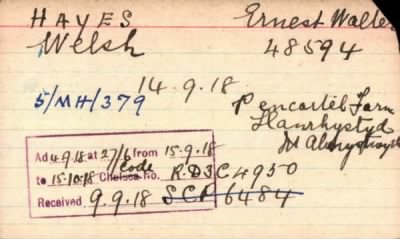 HAYES Ernest Walter
Welsh 48594
14.9.18
5/MH/379 Pencartel Farm
Llanrhystyd
Nr Aberystwyth
Ad 4.9.18 at 27/6 from 15-9-18
code
to 15-10-18 Chelsea No. R.D3C4950
Received 9.9.18 SCR 6484